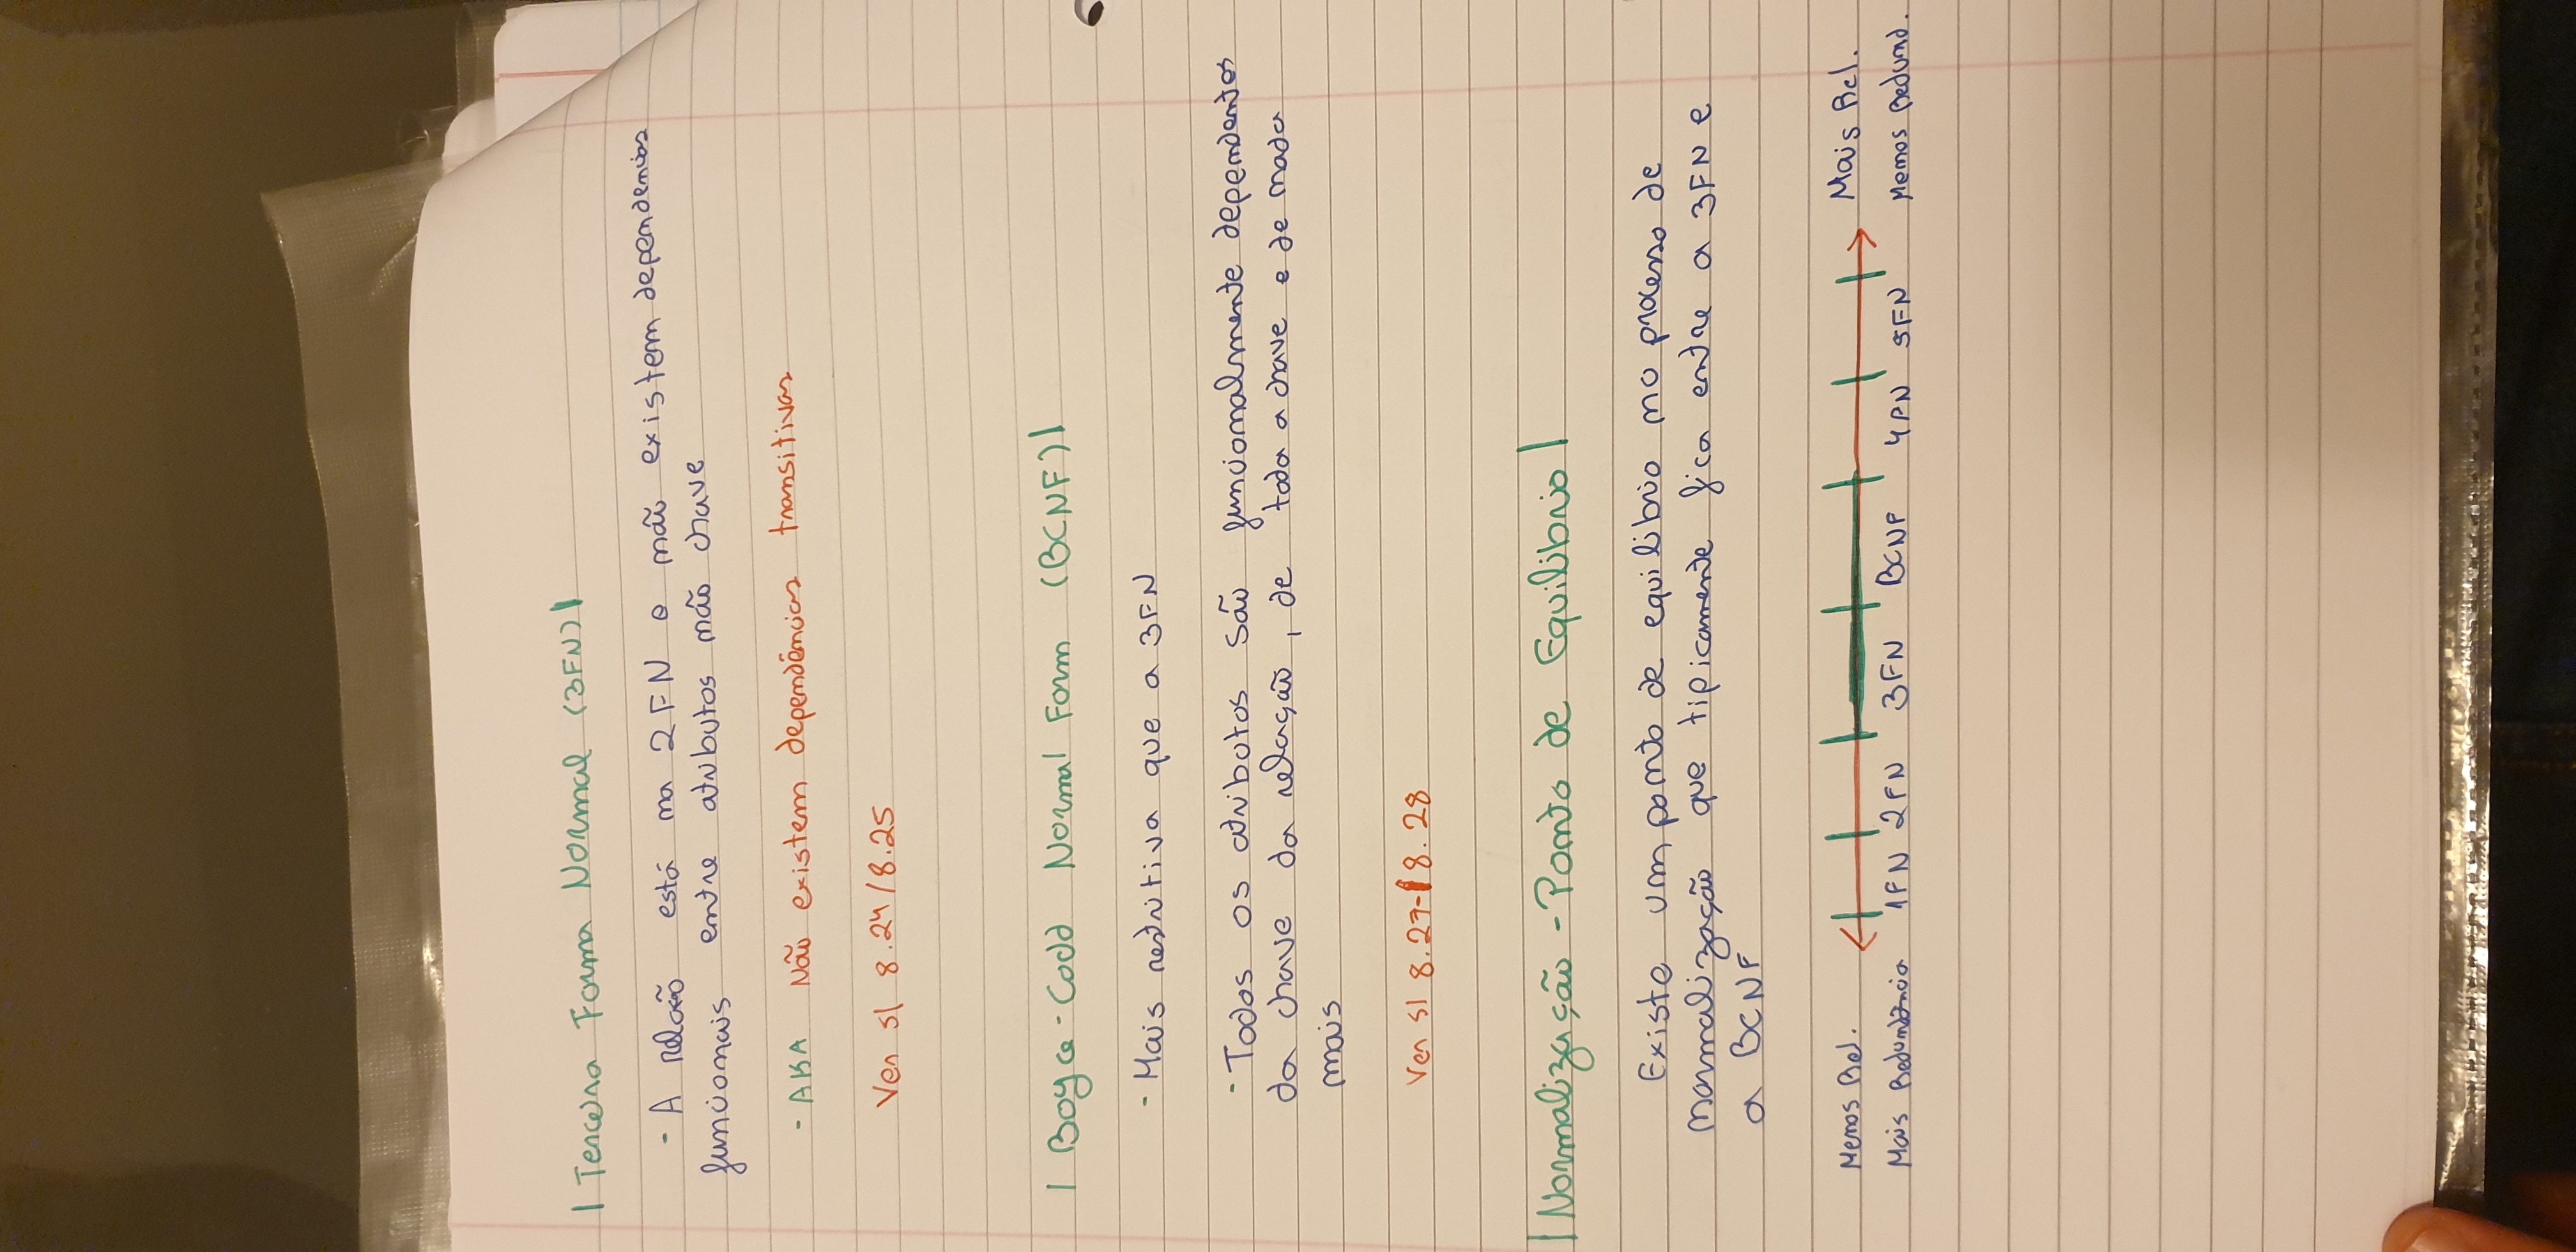 | Terceira Forma Normal (3FN) |
- A relação está na 2FN e não existem dependencias
funcionais entre atributos não chave
- AKA Não existem dependências transitivas
Ver sl 8.24/8.25
| Boyce-Codd Normal Form (BCNF) |
- Mais restritiva que a 3FN
- Todos os atributos são funcionalmente dependentes
da chave da relação, de toda a chave e de nada
mais
Ver sl 8.27-8.28
| Normalização - Ponto de Equilibrio |
Existe um ponto de equilibrio no processo de
normalização que tipicamente fica entre a 3FN e
a BCNF
Menos Rel. Mais Rel.
Mais Redundância 1FN 2FN 3FN BCNF 4FN 5FN Menos Redund.